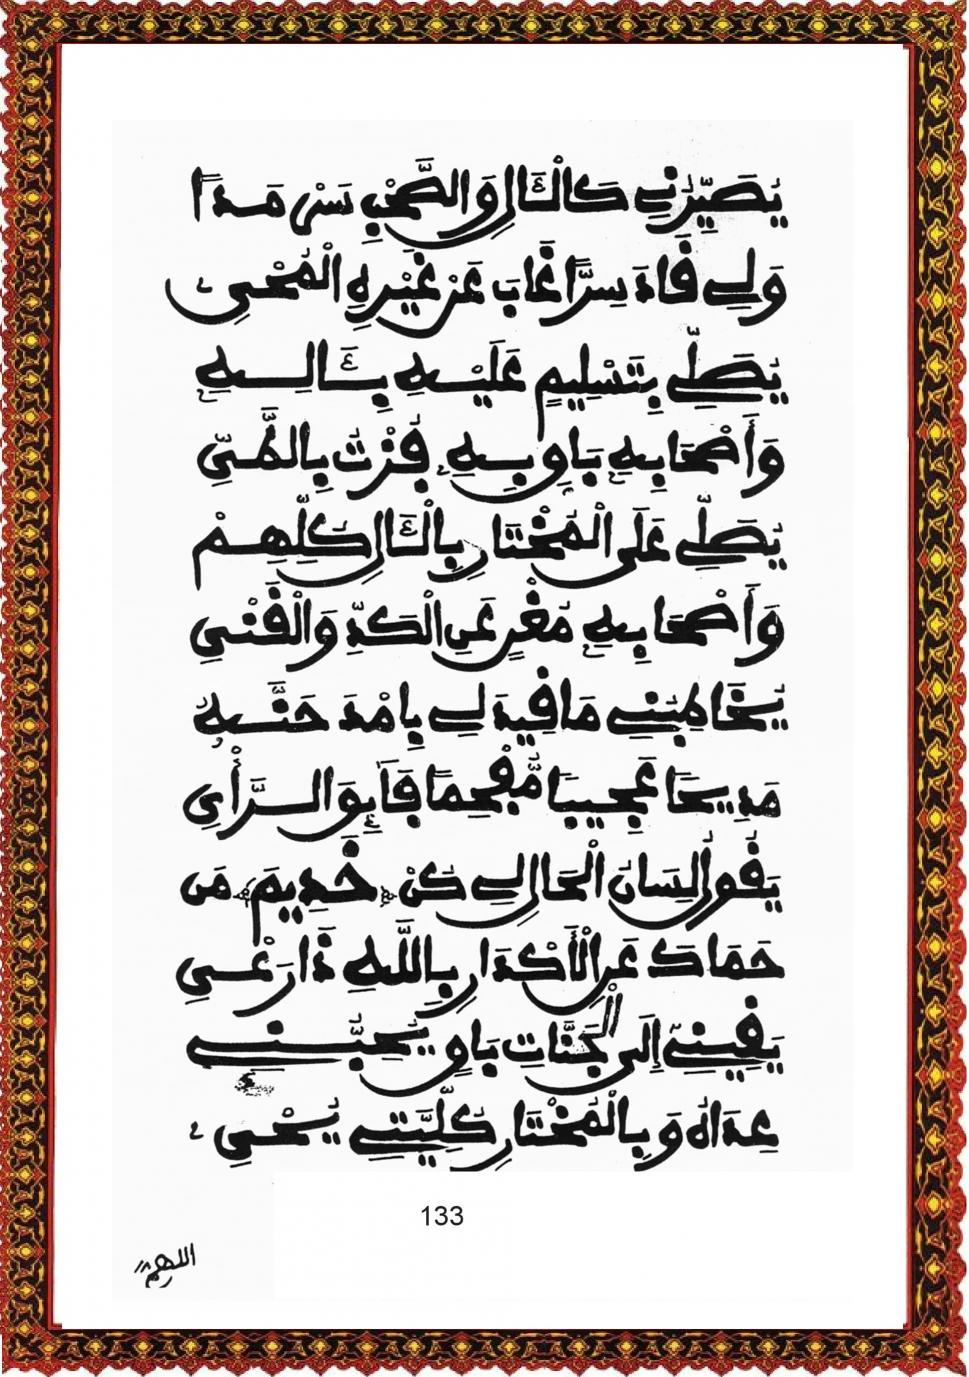 يُصَيِّرُنِي كَالْـَٔالِ وَالصَّحْبِ سَرْمَدًا
وَلِي قَادَ سِرًّا غَابَ عَنْ غَيْرِهِ الْمُحْيِي
يُصَلِّي بِتَسْلِيمٍ عَلَيْهِ بِـَٔالِهِ
وَأَصْحَابِهِ بَاقٍ بِهِ فُزْتُ بِاللَّهْيِ
يُصَلِّي عَلَى الْمُخْتَارِ بِالْـَٔالِ كُلِّهِمْ
وَأَصْحَابِهِ مُغْنٍ عَنِ الْكَدِّ وَالْقَنْيِ
يُخَاطِبُنِي مَا قِيدَ لِي بِامْدَحَنَّهُ
مَدِيحًا عَجِيبًا مُّفْحِمًا فَآئِقَ الرَّأْيِ
يَقُولُ لِسَانُ الْحَالِ لِي كُنْ خَدِيمَ مَن
حَمَاكَ عَنِ الْأَكْدَارِ بِاللَّهِ ذَا رَعْيِ
يَقِينِي إِلَى الْجَنَّاتِ بَاقٍ يُحِبُّنِي
عِدَاهُ وَبِالْمُخْتَارِ كُلِّيَّتِي يُحْيِي
133
اللهم